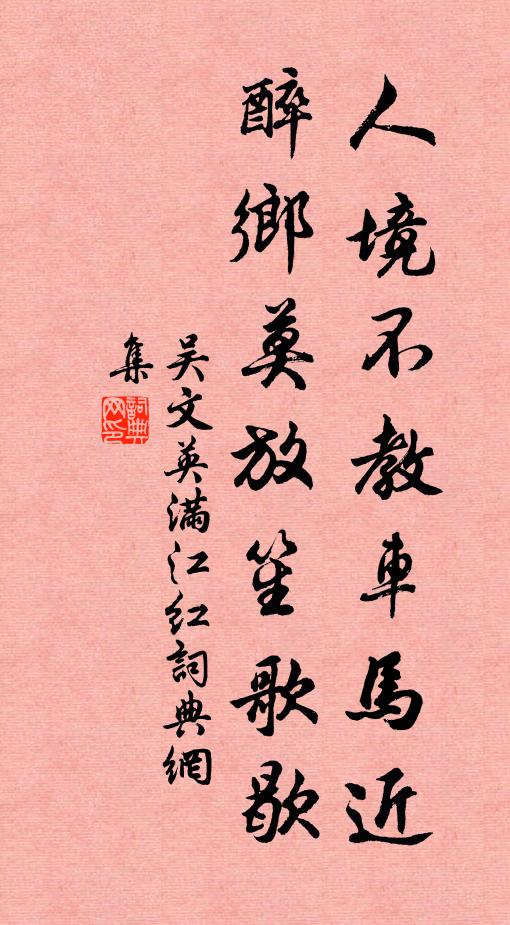 人境不教車馬近
醉鄉莫放笙歌歇
吴文英滿江红詞典網
集
詞典網印